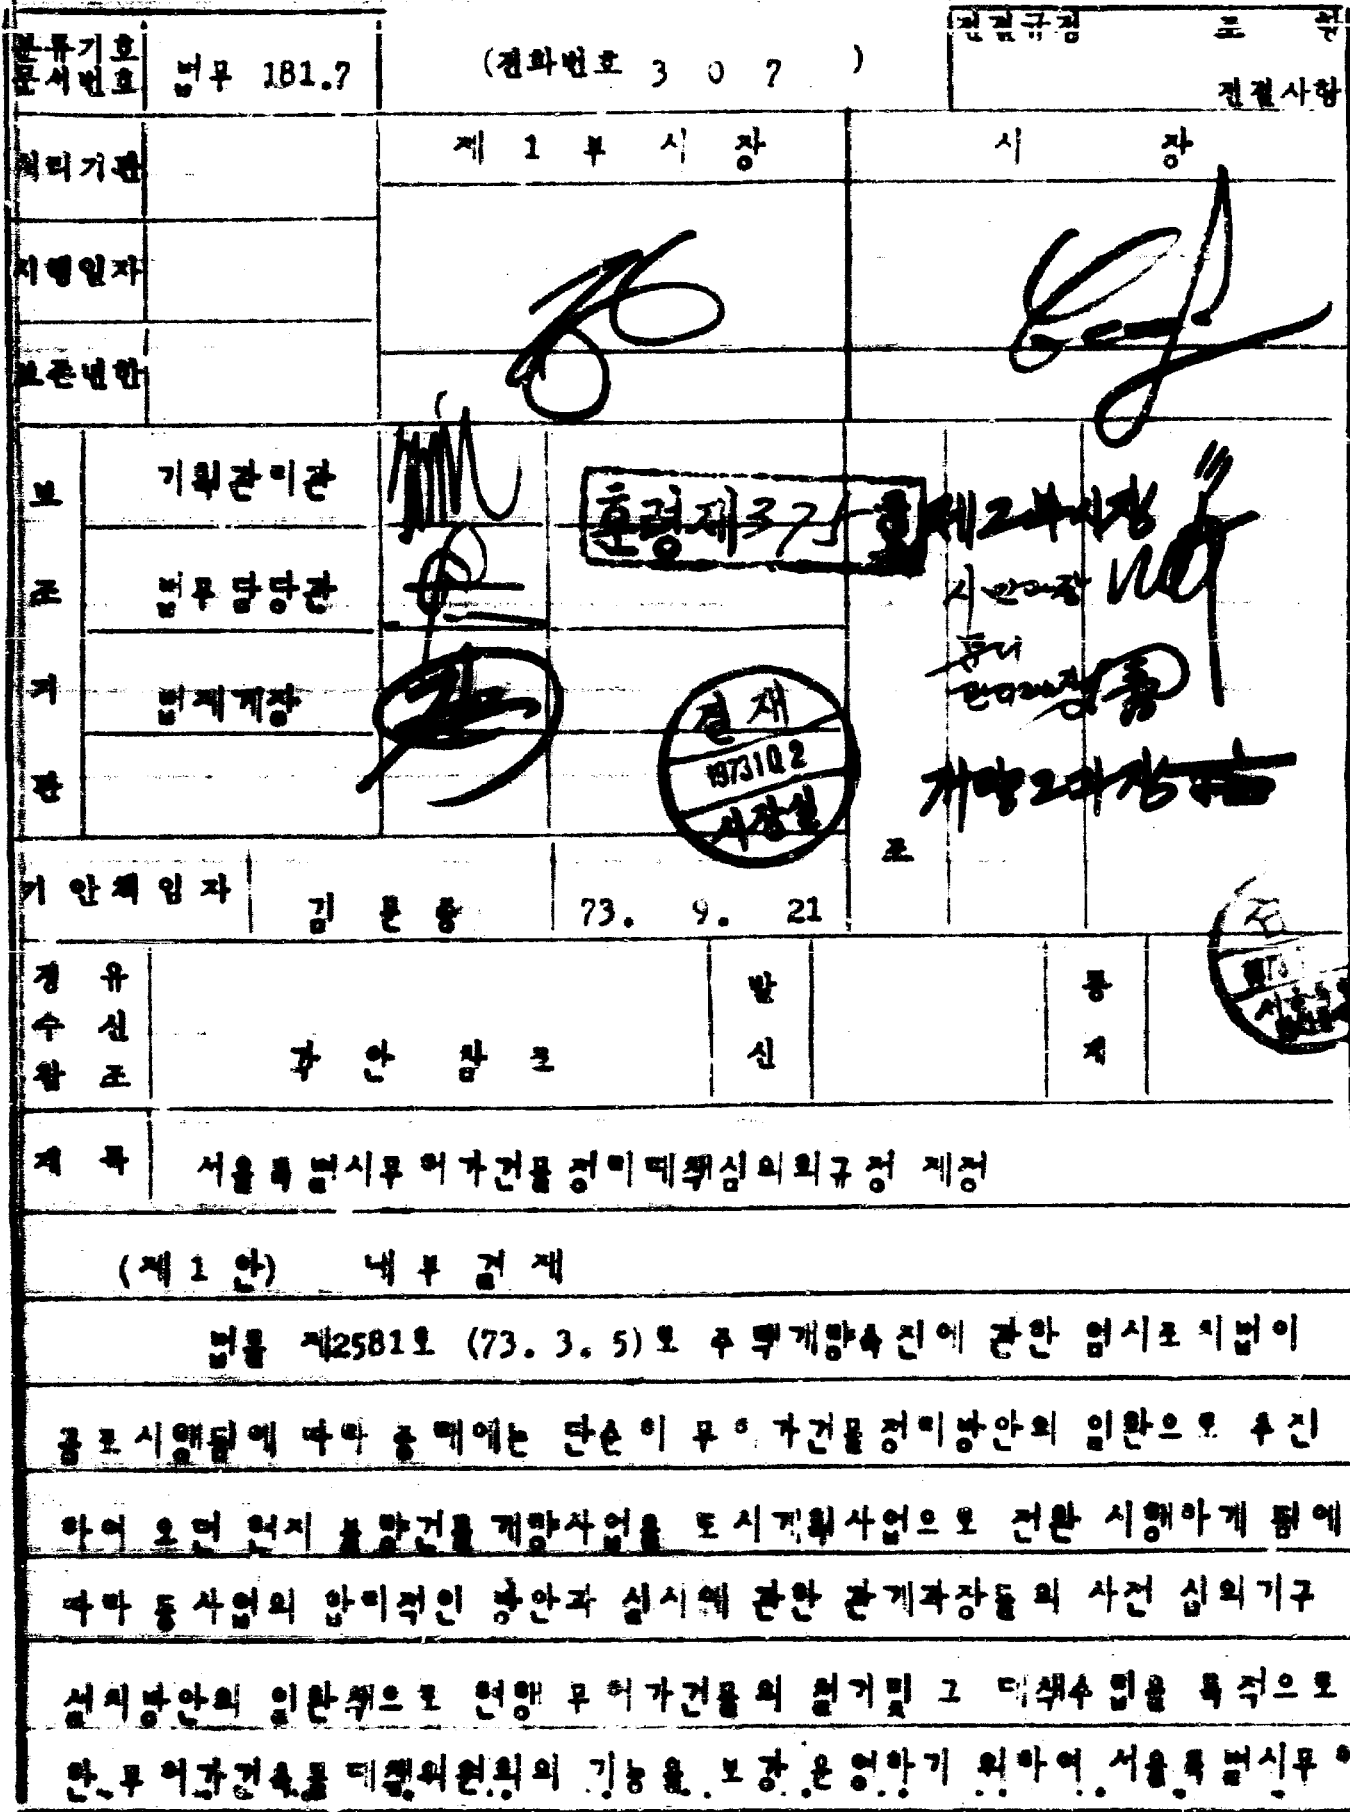 분류기호
문서번호
법무 181.7
(전화번호 3 0 7 )
전결규정 조
전결사항
처리기관
제 1 부 시 장
시 장
시행일자
보존년한
보 조 기 관
기획관리관
법무담당관
법제계장
훈령제375호
제2부시장
결재
1973 10. 2
시장실
개량2과장
조
기안책임자
73. 9. 21
경유
수신
참조
과 안 참 조
발신
통제
제 목
서울특별시무허가건물정비대책심의회규정 제정
(제 1 안) 내 부 결 재
법률 제2581호 (73. 3. 5)로 주택개량촉진에 관한 임시조치법이
공포시행됨에 따라 종래에는 단순히 무허가건물정리방안의 일환으로 추진
하여 오던 현지 불량건물개량사업을 도시계획사업으로 전환 시행하게 됨에
따라 동사업의 합리적인 방안과 실시에 관한 관계과장들의 사전 심의기구
설치방안의 일환책으로 현행 무허가건물의 철거및 그 대책수립을 목적으로
한 무허가건축물대책위원회의 기능을 보강 운영하기 위하여 서울특별시무허